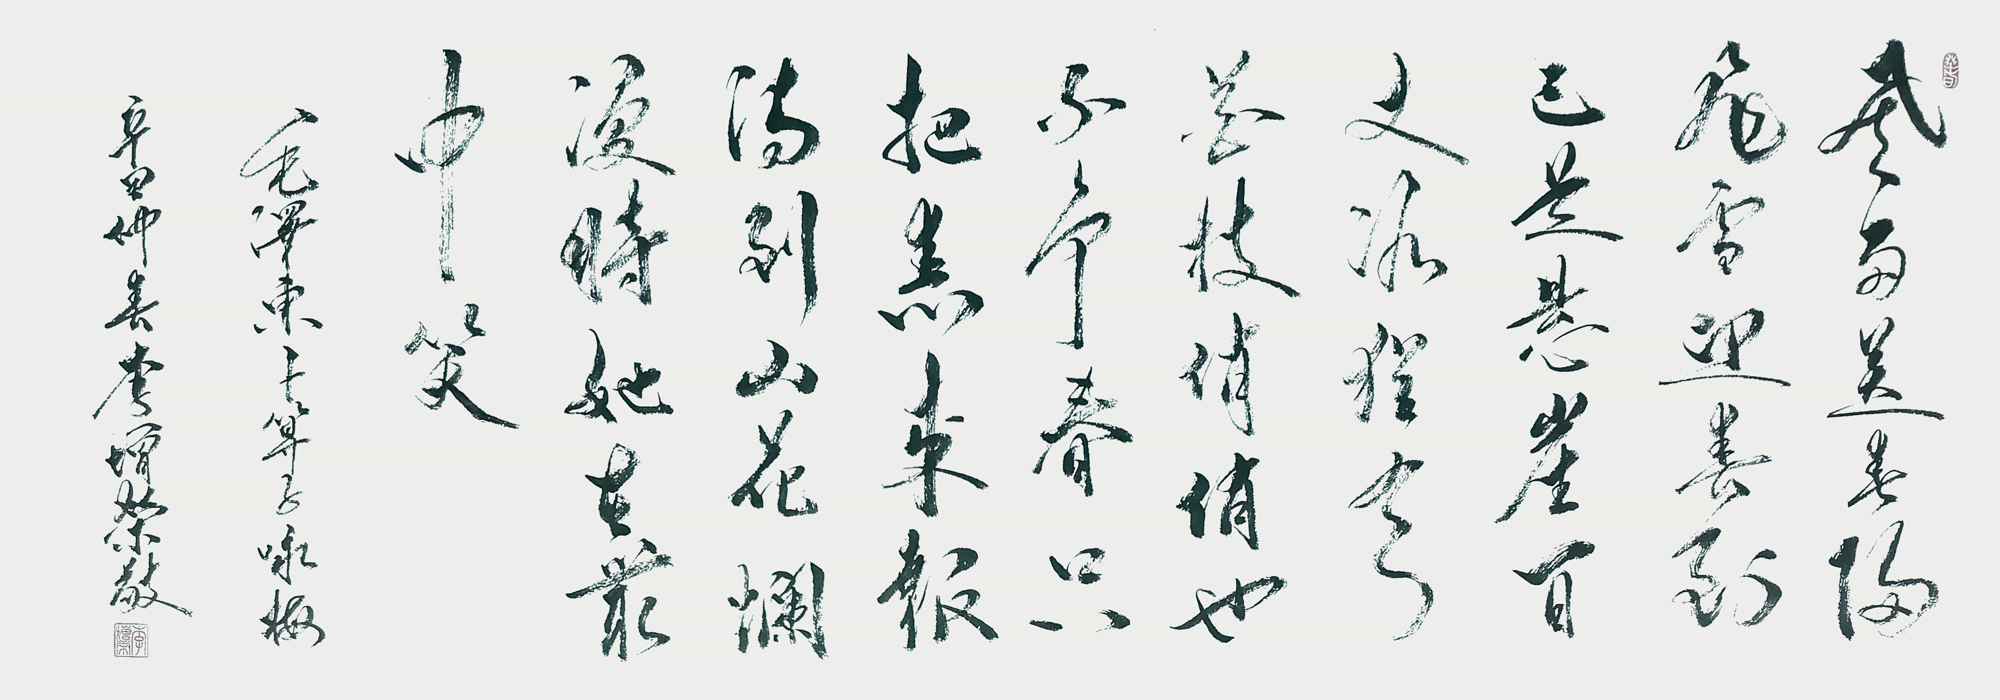 風雨送春歸
飛雪迎春到
已是悬崖百
丈冰猶有
花枝俏俏也
不争春只
把春来報
待到山花爛
漫時她在叢
中笑
毛澤東卜算子咏梅
辛丑仲春李增榮敬